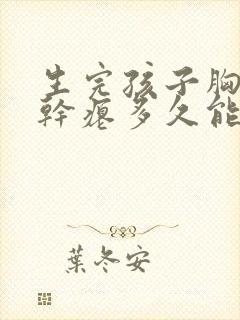 生完孩子胸
幹瘪多久能
葉冬安